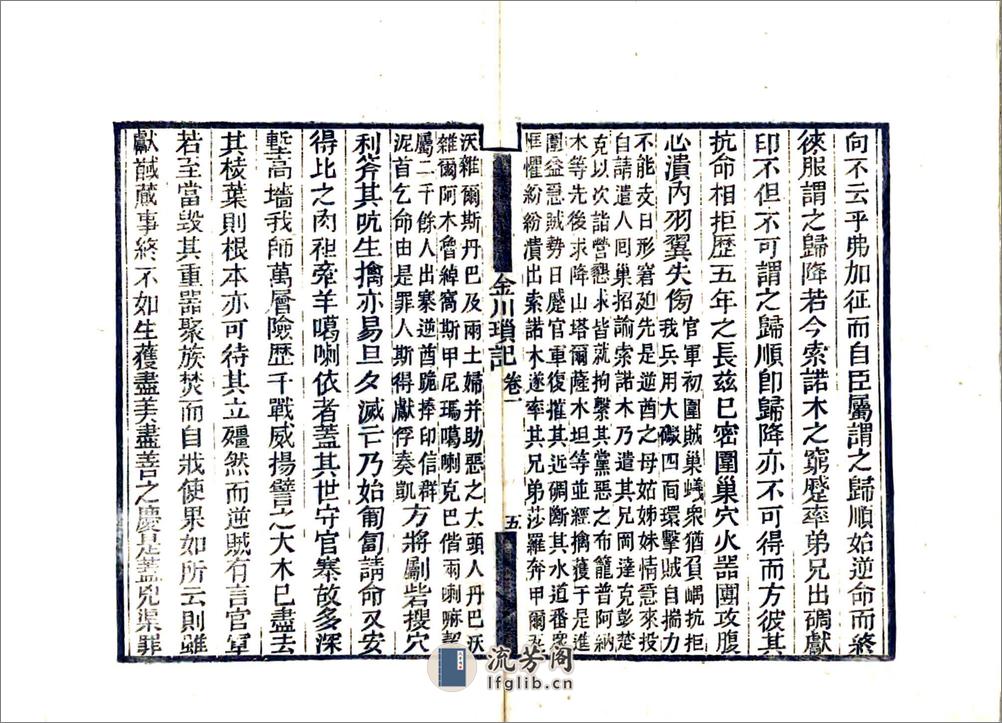 向不云乎弗加征而自臣屬謂之歸順始逆命而終
徠服謂之歸降若今索諾木之窮蹙率弟兄出碉獻
印不但不可謂之歸順卽歸降亦不可得而方彼其
抗命相拒歷五年之長茲已密圍巢穴火器團攻腹
心潰內羽翼失傷官軍初圍賊巢蟻衆猶負嵎抗拒
我兵用大礮四面環擊賊自揣力
不能支日形窘廹先是逆酋之母姑姊妹情急來投
自請遣人囘巢招諭索諾木乃遣其兄岡達克彭楚
克以次詣營懇求皆就拘繫其黨惡之布籠普阿納
木等先後求降山塔爾薩木坦等並經擒獲于是進
圍益急賊勢日蹙官軍復摧其近碉斷其水道番衆
恇懼紛紛潰出索諾木遂率其兄弟莎羅奔甲爾
金川瑣記 卷一 五
沃雜爾斯丹巴及兩土婦并助惡之大頭人丹巴沃
雜爾阿木魯綽窩斯甲尼瑪噶喇克巴偕兩喇嘛
屬二千餘人出寨逆酋跪捧印信群
泥首乞命由是罪人斯得獻俘奏凱方將劚砦搜穴
利斧其吭生擒亦易旦夕滅亡乃始匍匐請命又安
得比之肉袒牽羊噶喇依者蓋其世守官寨故多深
塹高墻我師萬層險歷千戰威揚譬之大木已盡去
其枝葉則根本亦可待其立殭然而逆賊有言官軍
若至當毀其重器聚族焚而自戕使果如所云則雖
獻馘蕆事終不如生獲盡美盡善之慶是蓋兇渠罪
流芳阁
lfglib.cn